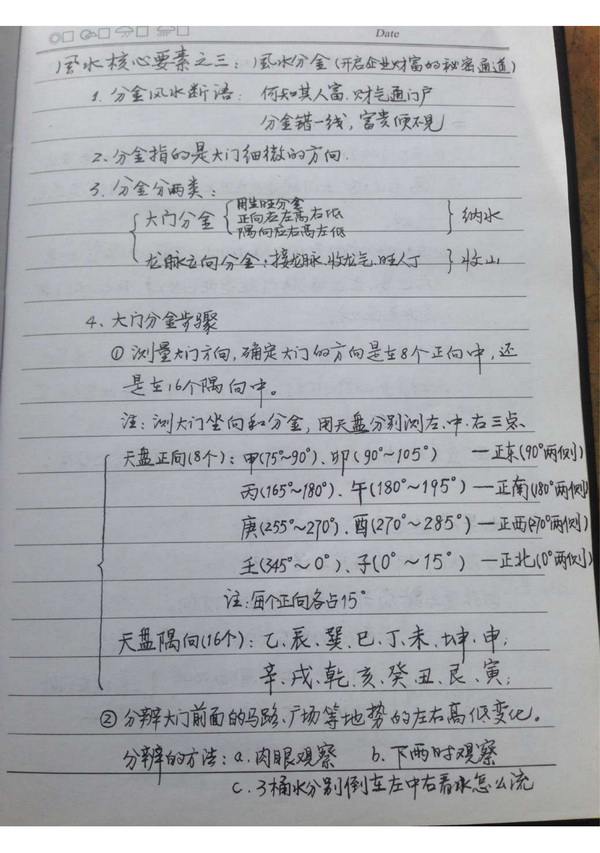 Date
风水核心要素之三：风水分金(开启企业财富的秘密通道)
1. 分金风水断语：何知其人富.财气通门户
分金错一线，富贵便不见
2. 分金指的是大门细微的方向.
3. 分金分两类：
用生旺分金
大门分金 正向应左高右低 纳水
隅向应右高左低
龙脉立向分金：接龙脉.收龙气.旺人丁 收山
4、大门分金步骤
① 测量大门方向，确定大门的方向是在8个正向中，还
是在16个隅向中。
注：测大门坐向和分金，用天盘分别测左、中、右三点.
天盘正向(8个)：甲(75°~90°)、卯(90°~105°) —正东(90°两侧)
丙(165°~180°)、午(180°~195°)—正南(180°两侧)
庚(255°~270°)、酉(270°~285°)—正西(270°两侧)
壬(345°~0°)、子(0°~15°)—正北(0°两侧)
注：每个正向各占15°
天盘隅向(16个)：乙、辰、巽、巳、丁、未、坤、申；
辛、戌、乾、亥、癸、丑、艮、寅；
② 分辨大门前面的马路、广场等地势的左右高低变化。
分辨的方法：a.肉眼观察 b.下雨时观察
c.3桶水分别倒在左中右看水怎么流